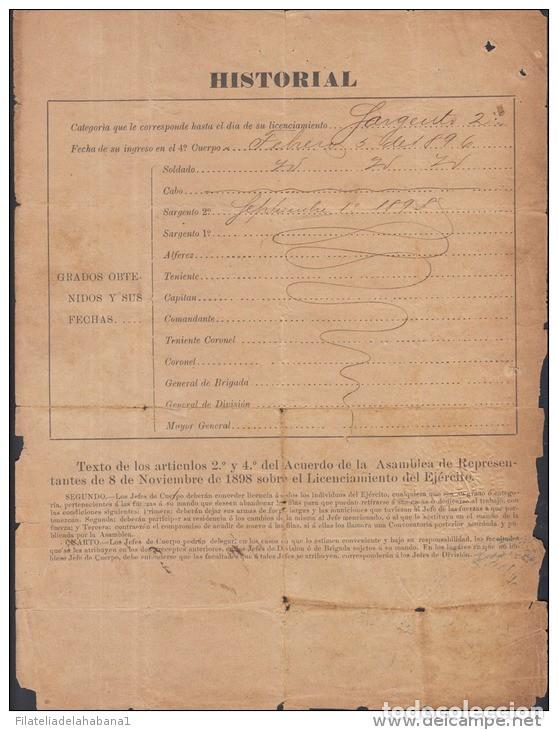 HISTORIAL
Categoria que le corresponde hasta el dia de su licenciamiento Sargento 2º
Fecha de su ingreso en el 4º Cuerpo Febrero 5 de 1896
Soldado id id id
Cabo
Sargento 2º Septiembre 1º 1898
Sargento 1º
Alferez
GRADOS OBTENIDOS Y SUS FECHAS.
Teniente
Capitan
Comandante
Teniente Coronel
Coronel
General de Brigada
General de División
Mayor General
Texto de los articulos 2.º y 4.º del Acuerdo de la Asamblea de Represen-
tantes de 8 de Noviembre de 1898 sobre el Licenciamiento del Ejército.
SEGUNDO.—Los Jefes de Cuerpo deberán conceder licencia á los individuos del Ejército, cualquiera que sea su grado ó catego-
ria, pertenecientes á las fuerzas á su mando que deseen abandonar las filas para que puedan retirarse á sus casas ó dedicarse al trabajo, con
las condiciones siguientes: Primera: deberán dejar sus armas de fuego largas y las municiones que tuvieran al Jefe de las fuerzas á que per-
tenezcan. Segunda: deberán participar su residencia ó los cambios de la misma al Jefe mencionado, ó al que lo sustituya en el mando de la
fuerza y Tercera: contraerán el compromiso de acudir de nuevo á las filas, si á ellas los llamara una Convocatoria posterior acordada y pu-
blicada por la Asamblea.
CUARTO.—Los Jefes de Cuerpo podrán delegar, en los casos en que lo estimen conveniente y bajo su responsabilidad, las facultades
que se les atribuyen en los dos preceptos anteriores, en los Jefes de División ó de Brigada sujetos á su mando. En los lugares en que no hu-
biese Jefe de Cuerpo, debe entenderse que las facultades que á tales Jefes se atribuyen, corresponderán á los Jefes de División.
Filateliadelahabana1
todocoleccion.net